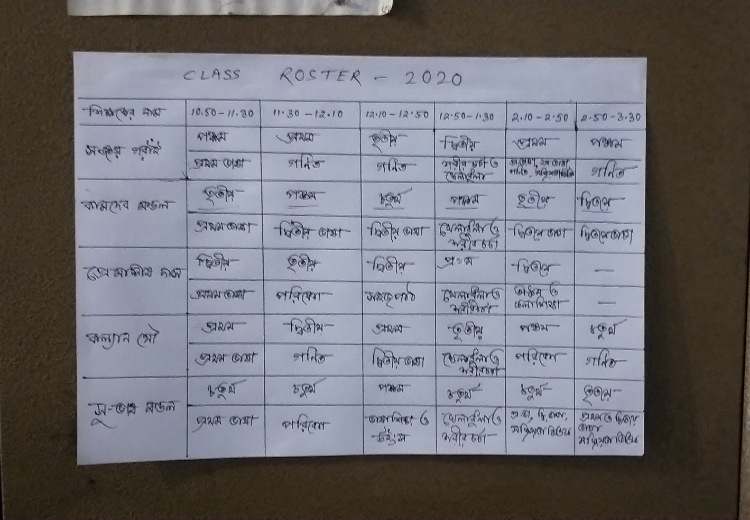 CLASS ROSTER - 2020
শিক্ষকের নাম 10.50-11.30 11.30-12.10 12.10-12.50 12.50-1.30 2.10-2.50 2.50-3.30
পঞ্চম প্রথম তৃতীয় দ্বিতীয় প্রথম পঞ্চম
প্রথম ভাষা গণিত গণিত শরীরচর্চা ও খেলাধুলা গণিত
তৃতীয় পঞ্চম চতুর্থ পঞ্চম তৃতীয় দ্বিতীয়
মন্ডল
প্রথম ভাষা দ্বিতীয় ভাষা দ্বিতীয় ভাষা খেলাধুলা ও শরীরচর্চা দ্বিতীয় ভাষা দ্বিতীয় ভাষা
দ্বিতীয় তৃতীয় দ্বিতীয় প্রথম দ্বিতীয় —
দাস
প্রথম ভাষা পরিবেশ সহজ পাঠ খেলাধুলা ও শরীরচর্চা —
প্রথম দ্বিতীয় প্রথম তৃতীয় পঞ্চম চতুর্থ
কল্যান
প্রথম ভাষা গণিত দ্বিতীয় ভাষা খেলাধুলা ও শরীরচর্চা পরিবেশ গণিত
চতুর্থ চতুর্থ পঞ্চম চতুর্থ চতুর্থ তৃতীয়
মন্ডল
প্রথম ভাষা পরিবেশ খেলাধুলা ও শরীরচর্চা প্রথম ও দ্বিতীয় ভাষা